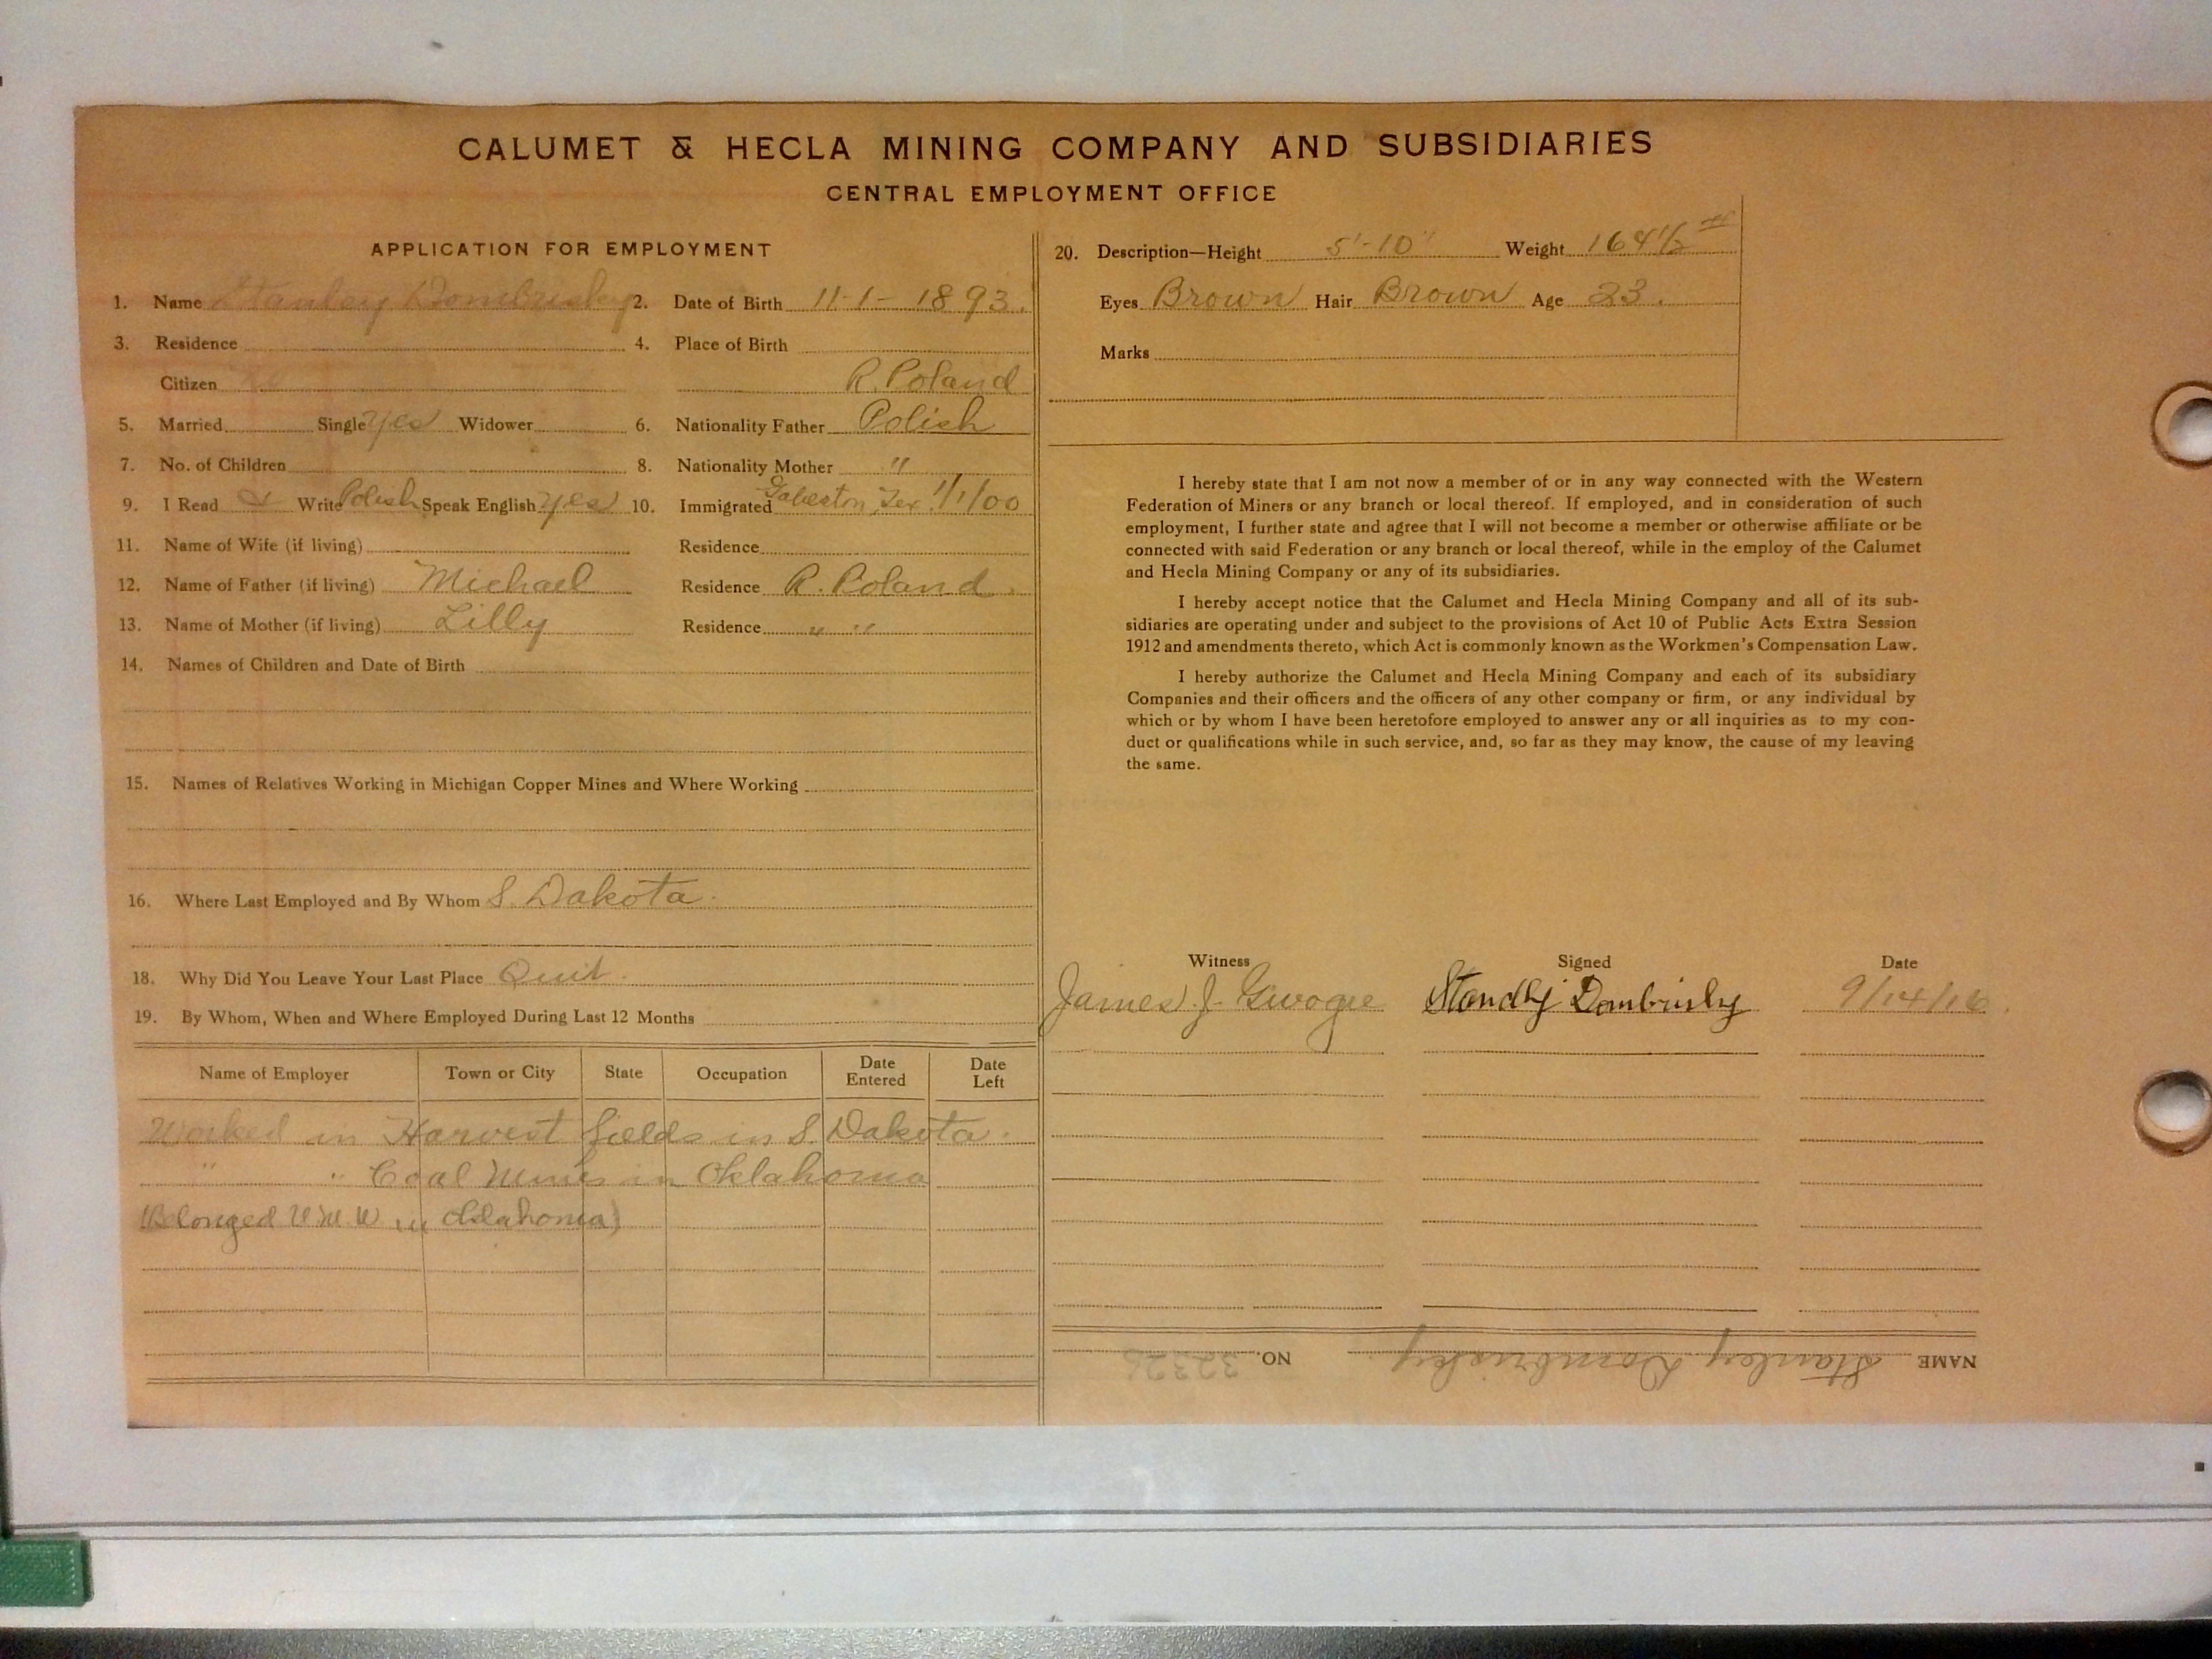 CALUMET & HECLA MINING COMPANY AND SUBSIDIARIES
CENTRAL EMPLOYMENT OFFICE
APPLICATION FOR EMPLOYMENT
1. Name Stanley Dombrusky 2. Date of Birth 11-1-1893.
3. Residence 4. Place of Birth
Citizen R. Poland
5. Married Single yes Widower 6. Nationality Father Polish
7. No. of Children 8. Nationality Mother "
9. I Read & Write Polish Speak English yes 10. Immigrated Galveston, Tex. 1/1/00
11. Name of Wife (if living) Residence
12. Name of Father (if living) Michael Residence R. Poland.
13. Name of Mother (if living) Lilly Residence " "
14. Names of Children and Date of Birth
15. Names of Relatives Working in Michigan Copper Mines and Where Working
16. Where Last Employed and By Whom S. Dakota.
18. Why Did You Leave Your Last Place Quit.
19. By Whom, When and Where Employed During Last 12 Months
Name of Employer Town or City State Occupation Date Entered Date Left
Worked in Harvest fields in S. Dakota.
" " Coal Mines in Oklahoma
(Belonged U.M.W in Oklahoma)
20. Description—Height 5'-10" Weight 164 1/2
Eyes Brown Hair Brown Age 23.
Marks
I hereby state that I am not now a member of or in any way connected with the Western
Federation of Miners or any branch or local thereof. If employed, and in consideration of such
employment, I further state and agree that I will not become a member or otherwise affiliate or be
connected with said Federation or any branch or local thereof, while in the employ of the Calumet
and Hecla Mining Company or any of its subsidiaries.
I hereby accept notice that the Calumet and Hecla Mining Company and all of its sub-
sidiaries are operating under and subject to the provisions of Act 10 of Public Acts Extra Session
1912 and amendments thereto, which Act is commonly known as the Workmen's Compensation Law.
I hereby authorize the Calumet and Hecla Mining Company and each of its subsidiary
Companies and their officers and the officers of any other company or firm, or any individual by
which or by whom I have been heretofore employed to answer any or all inquiries as to my con-
duct or qualifications while in such service, and, so far as they may know, the cause of my leaving
the same.
Witness Signed Date
James J. Standly Dombrisky 9/14/16
NAME Stanley Dombrusky NO.